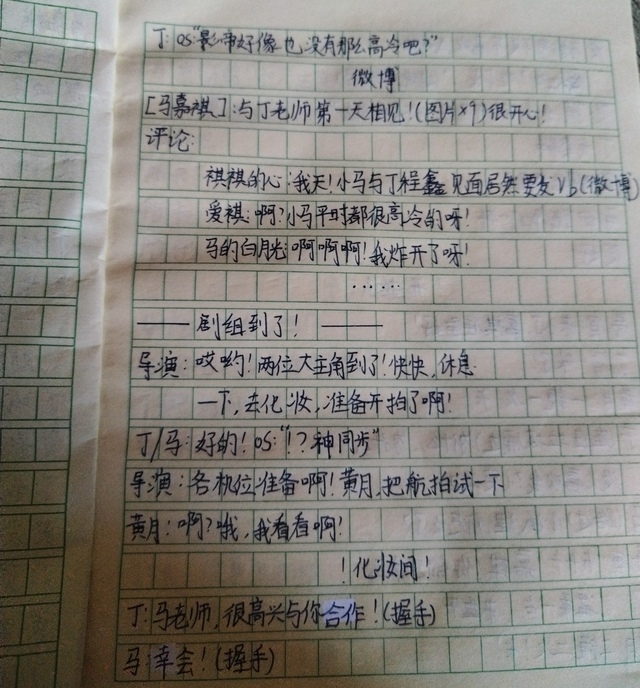 丁:OS"影帝好像也没有那么高冷吧?"
微博
[马嘉祺]:与丁老师第一天相见!(图片×9)很开心!
评论:
祺祺的心:我天!小马与丁程鑫见面居然要发Vb(微博)
爱祺:啊?小马平时都很高冷的呀!
马的白月光:啊啊啊!我炸开了呀!
……
——剧组到了!——
导演:哎哟!两位大主角到了!快快,休息
一下,去化妆,准备开拍了啊!
丁/马:好的!OS:"!?神同步"
导演:各机位准备啊!黄月,把航拍试一下
黄月:啊?哦,我看看啊!
!化妆间!
丁:马老师,很高兴与你合作!(握手)
马:幸会!(握手)